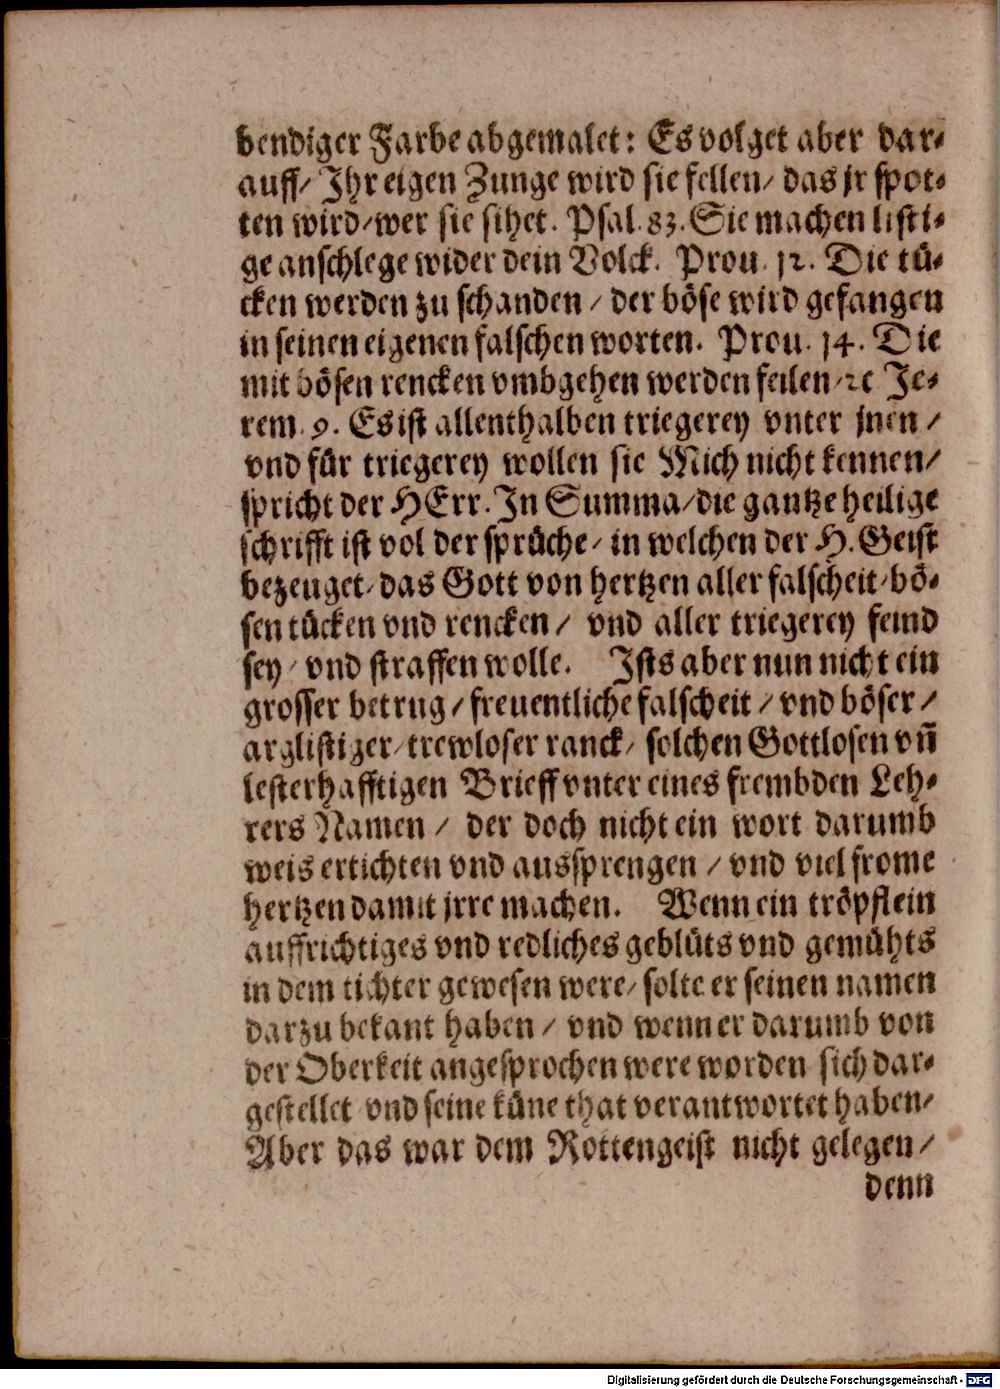 bendiger Farbe abgemalet: Es volget aber dar-
auff/ Ihr eigen Zunge wird sie fellen/ das jr spot-
ten wird/ wer sie sihet. Psal. 83. Sie machen listi-
ge anschlege wider dein Volck. Prou. 12. Die tü-
cken werden zu schanden/ der böse wird gefangen
in seinen eigenen falschen worten. Prou. 14. Die
mit bösen rencken vmbgehen werden feilen/ ꝛc Je-
rem. 9. Es ist allenthalben triegerey vnter jnen/
vnd für triegerey wollen sie Mich nicht kennen/
spricht der HErr. In Summa/ die gantze heilige
schrifft ist vol der sprüche/ in welchen der H. Geist
bezeuget/ das Gott von hertzen aller falscheit/ bö-
sen tücken vnd rencken/ vnd aller triegerey feind
sey/ vnd straffen wolle. Ists aber nun nicht ein
grosser betrug/ freuentliche falscheit/ vnd böser/
arglistiger/ trewloser ranck/ solchen Gottlosen vñ
lesterhafftigen Brieff vnter eines frembden Leh-
rers Namen/ der doch nicht ein wort darumb
weis ertichten vnd aussprengen/ vnd viel frome
hertzen damit jrre machen. Wenn ein tröpflein
auffrichtiges vnd redliches geblüts vnd gemühts
in dem tichter gewesen were/ solte er seinen namen
darzu bekant haben/ vnd wenn er darumb von
der Oberkeit angesprochen were worden sich dar-
gestellet vnd seine küne that verantwortet haben/
Aber das war dem Rottengeist nicht gelegen/
denn
Digitalisierung gefördert durch die Deutsche Forschungsgemeinschaft - DFG